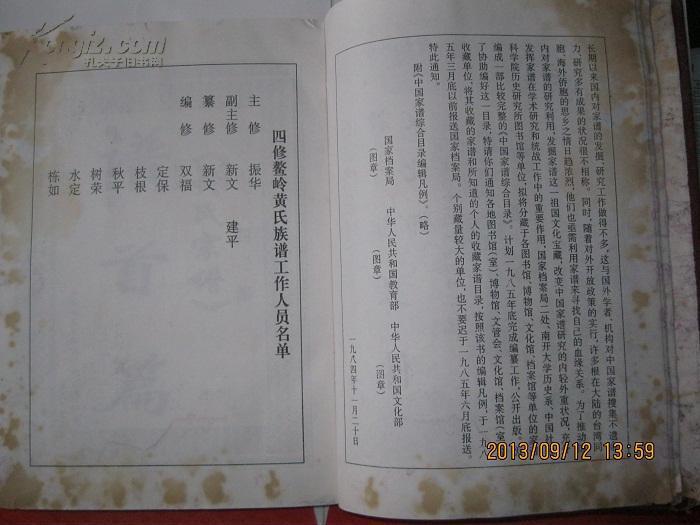 长期以来国内对家谱的发掘、研究工作做得不多,这与国外学者、机构对中国家谱搜集不遗
力、研究多有成果的状况很不相称。同时,随着对外开放政策的实行,许多根在大陆的台湾同
胞、海外侨胞的思乡之情日趋浓烈,他们也亟需利用家谱来寻找自己的血缘关系。为了推动
内对家谱的研究利用,发掘家谱这一祖国文化宝藏,改变中国家谱研究的内轻外重状况,充
发挥家谱在学术研究和统战工作中的重要作用,国家档案局二处、南开大学历史系、中国社
科学院历史研究所图书馆等单位,拟将分藏于各图书馆、博物馆、文化馆、档案馆等单位的家
编成一部比较完整的《中国家谱综合目录》。计划一九八五年底完成编纂工作,公开出版。
了协助编好这一目录,特请你们通知各地图书馆(室)、博物馆、文管会、文化馆、档案馆(室
收藏单位,将其收藏的家谱和所知道的个人的收藏家谱目录,按照该书的编辑凡例,于一九八
五年三月底以前报送国家档案局。个别藏量较大的单位,也不要迟于一九八五年六月底报送。
特此通知。
附《中国家谱综合目录编辑凡例》。(略)
国家档案局 中华人民共和国教育部 中华人民共和国文化部
(图章) (图章) (图章)
一九八四年十一月二十日
四修鳌岭黄氏族谱工作人员名单
主修 振华
副主修 新文 建平
纂修 新文
编修 双福
定保
枝根
秋平
树荣
水定
栋如
Kongfz.com
孔夫子旧书网
2013/09/12 13:59